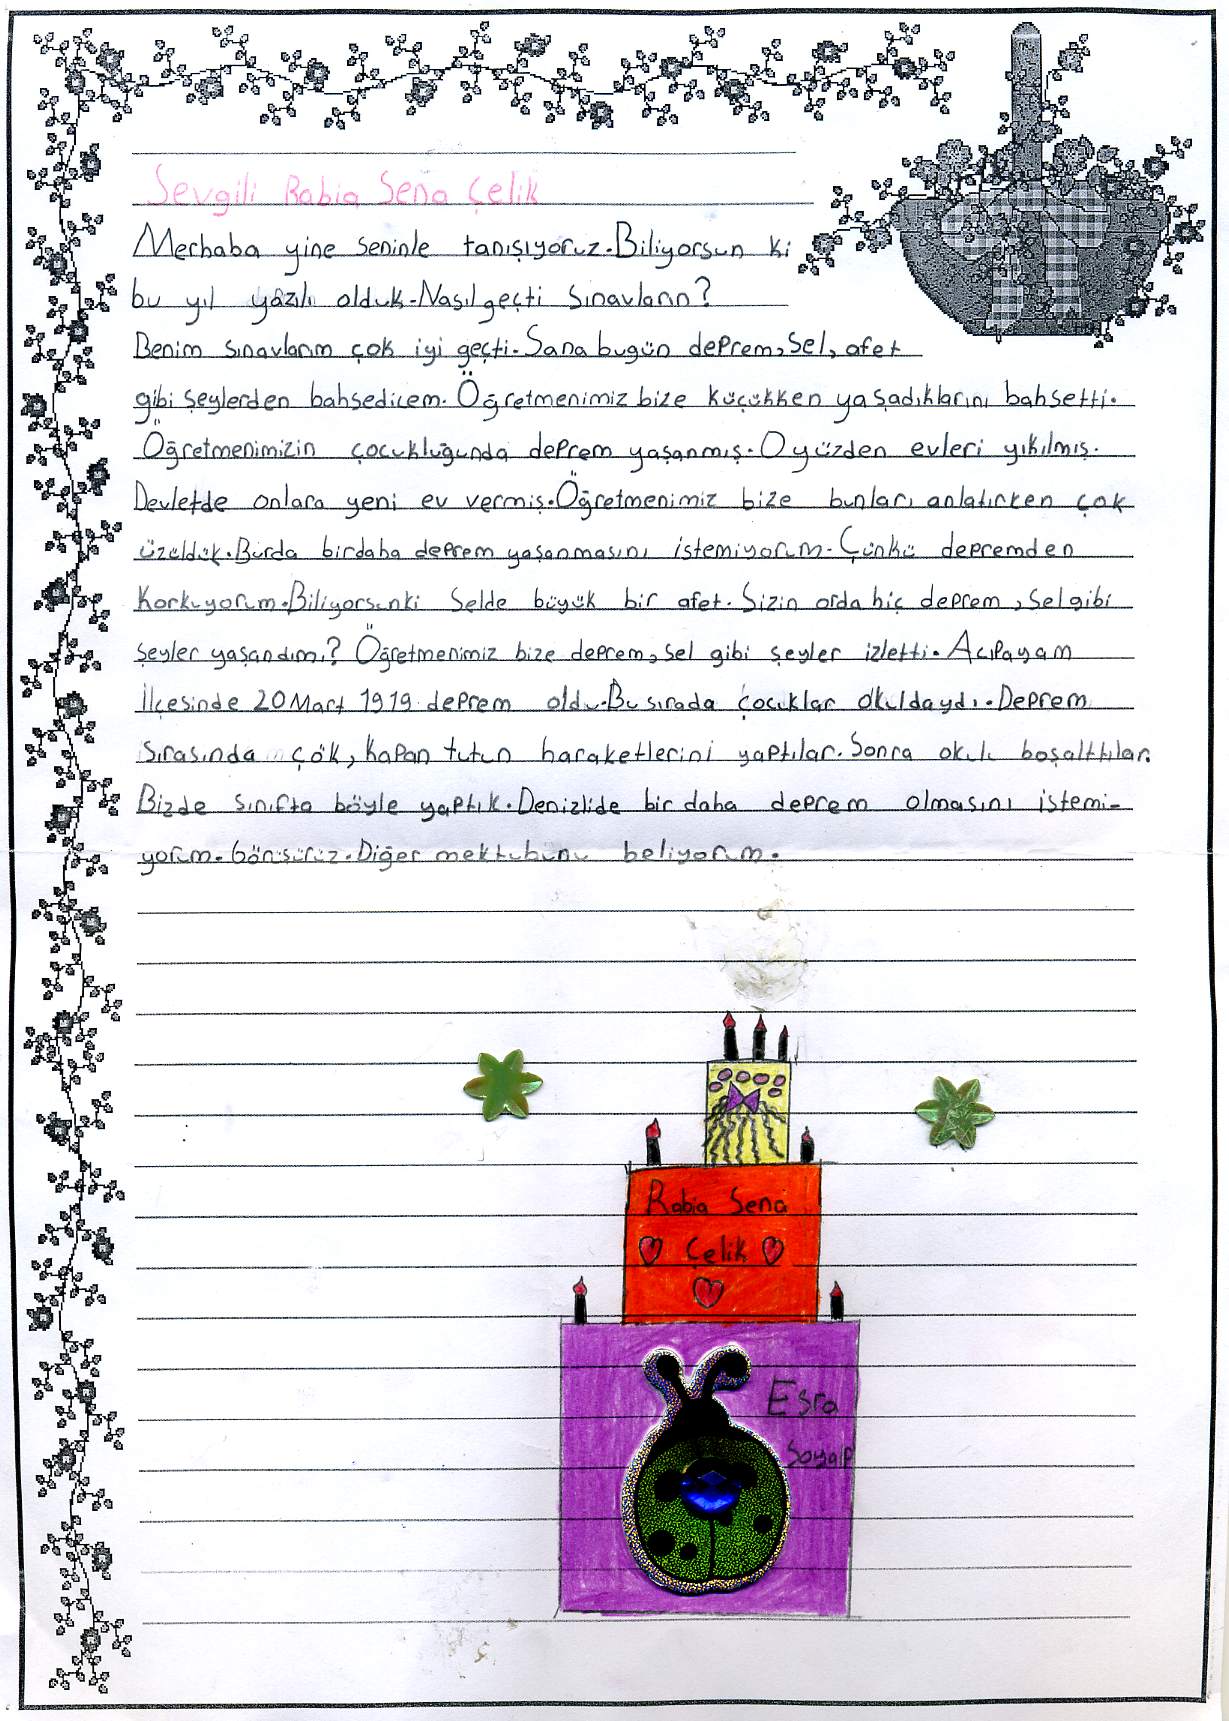 Sevgili Rabia Sena Çelik
Merhaba yine seninle tanışıyoruz. Biliyorsun ki
bu yıl yazılı olduk. Nasıl geçti sınavların?
Benim sınavlarım çok iyi geçti. Sana bugün deprem, sel, afet
gibi şeylerden bahsedicem. Öğretmenimiz bize küçükken yaşadıklarını bahsetti.
Öğretmenimizin çocukluğunda deprem yaşanmış. O yüzden evleri yıkılmış.
Devletde onlara yeni ev vermiş. Öğretmenimiz bize bunları anlatırken çok
üzüldük. Burda birdaha deprem yaşanmasını istemiyorum. Çünkü depremden
korkuyorum. Biliyorsunki selde büyük bir afet. Sizin orda hiç deprem, sel gibi
şeyler yaşandımı? Öğretmenimiz bize deprem, sel gibi şeyler izletti. Acıpayam
İlçesinde 20 Mart 1919 deprem oldu. Bu sırada çocuklar okuldaydı. Deprem
sırasında çök, kapan tutun haraketlerini yaptılar. Sonra okulu boşalttılar.
Bizde sınıfta böyle yaptık. Denizlide bir daha deprem olmasını istemi-
yorum. Görüşürüz. Diğer mektubunu beliyorum.
Rabia Sena
Çelik
Esra
Soyalp